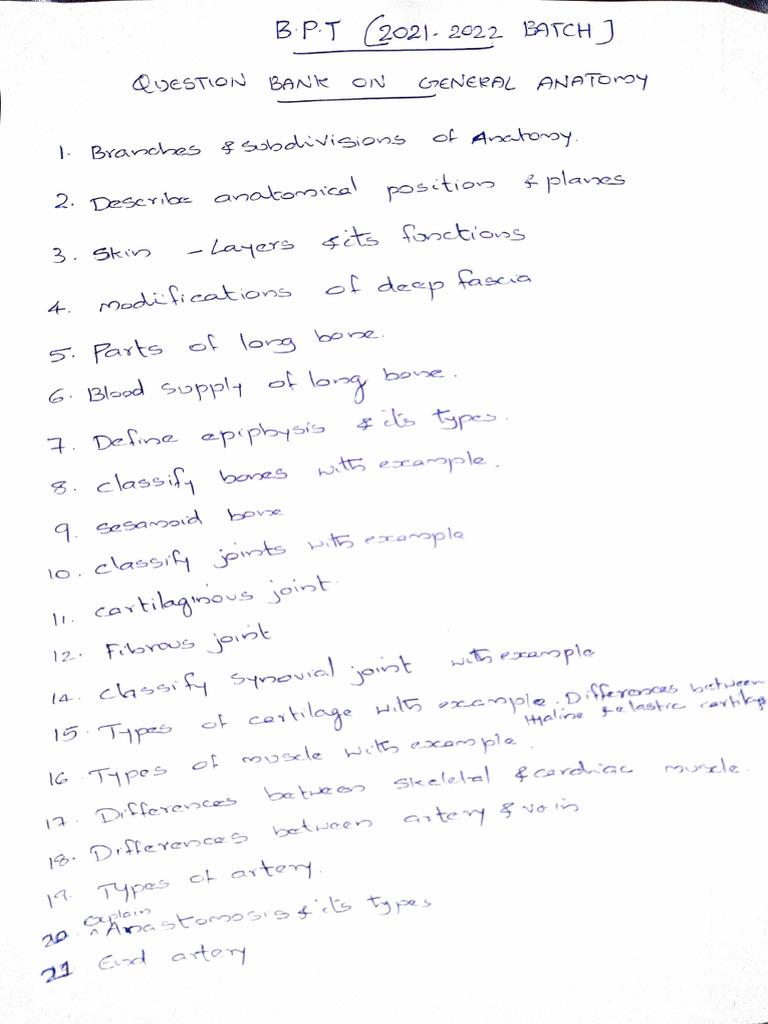 B.P.T (2021-2022 BATCH]
QUESTION BANK ON GENERAL ANATOMY
1. Branches & subdivisions of Anatomy.
2. Describe anatomical position & planes
3. Skin - Layers & its functions
4. modifications of deep fascia
5. Parts of long bone.
6. Blood supply of long bone.
7. Define epiphysis & its types.
8. classify bones with example.
9. sesamoid bone
10. classify joints with example
11. cartilaginous joint.
12. Fibrous joint
14. classify synovial joint with example
15. Types of cartilage with example. Differences between
Hyaline & elastic cartilage
16 Types of muscle with example.
17. Differences between skeletal & cardiac muscle.
18. Differences between artery & vein
19. Types of artery.
explain
20 ^ Anastomosis & its types
21 End artery